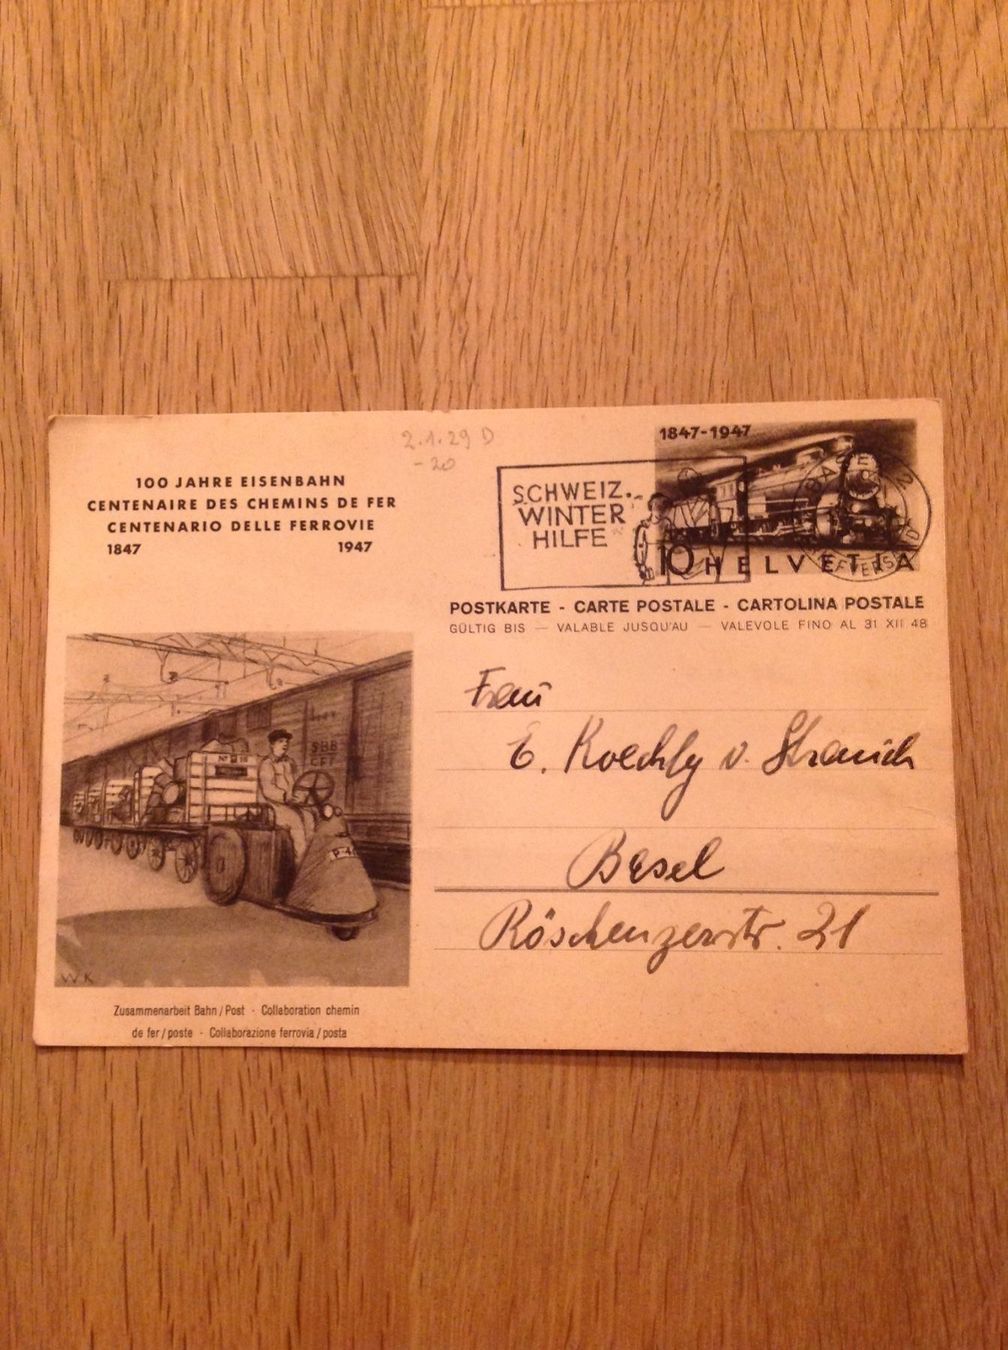 2.1.29 D
-20
100 JAHRE EISENBAHN
CENTENAIRE DES CHEMINS DE FER
CENTENARIO DELLE FERROVIE
1847 1947
1847-1947
SCHWEIZ.
WINTER
HILFE
BASEL 2
10 HELVETIA
POSTKARTE - CARTE POSTALE - CARTOLINA POSTALE
GÜLTIG BIS — VALABLE JUSQU'AU — VALEVOLE FINO AL 31 XII 48
Frau
E. Koechly v. Strauich
Basel
Röschenzerstr. 21
No
SBB
CFF
P-4
WK
Zusammenarbeit Bahn/Post - Collaboration chemin
de fer/poste - Collaborazione ferrovia/posta